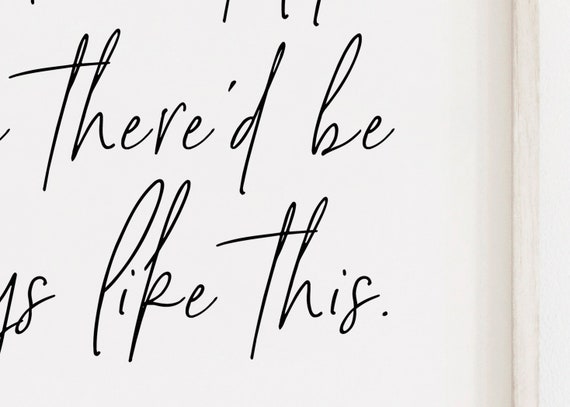 there'd be
like this.